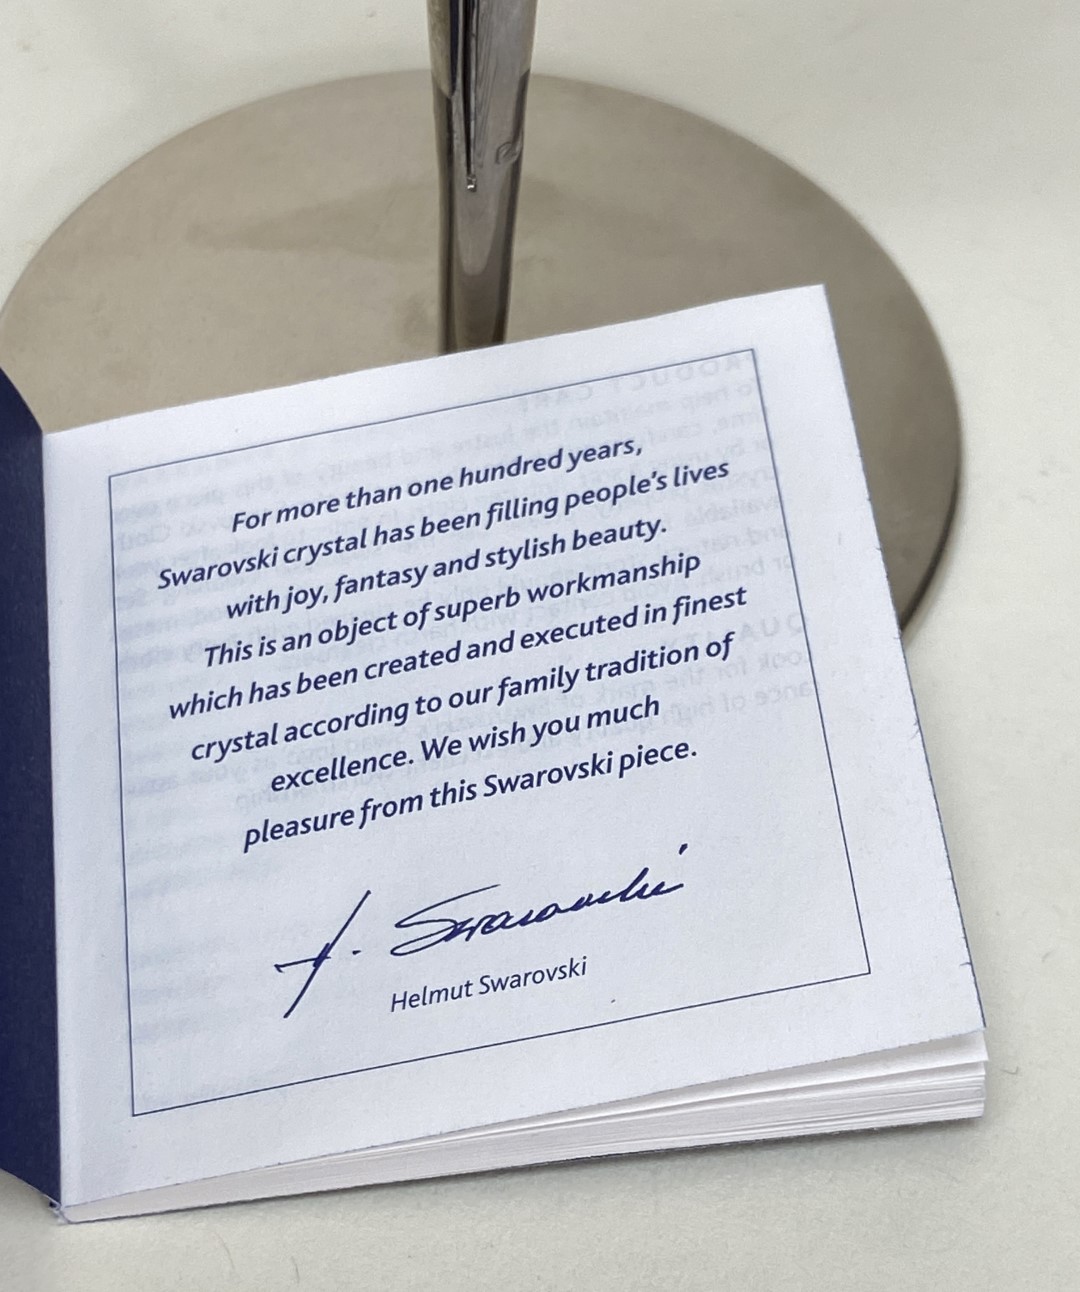 For more than one hundred years,
Swarovski crystal has been filling people's lives
with joy, fantasy and stylish beauty.
This is an object of superb workmanship
which has been created and executed in finest
crystal according to our family tradition of
excellence. We wish you much
pleasure from this Swarovski piece.
H. Swarovski
Helmut Swarovski